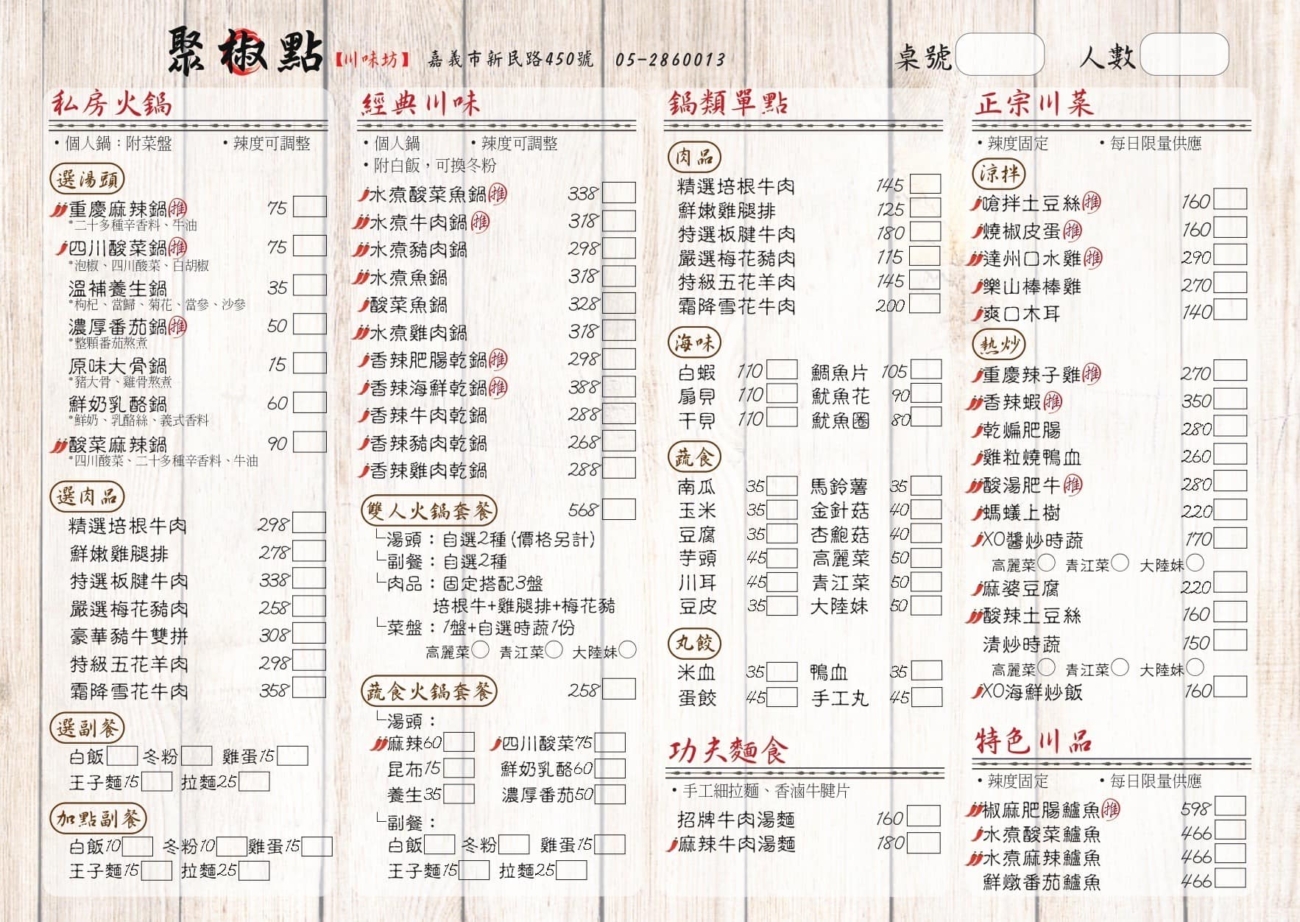 聚椒點【川味坊】 嘉義市新民路450號 05-2860013 桌號 人數
私房火鍋
•個人鍋：附菜盤 •辣度可調整
選湯頭
重慶麻辣鍋推 75
*二十多種辛香料、牛油
四川酸菜鍋推 75
*泡椒、四川酸菜、白胡椒
溫補養生鍋 35
*枸杞、當歸、菊花、當參、沙參
濃厚番茄鍋推 50
*整顆番茄熬煮
原味大骨鍋 15
*豬大骨、雞骨熬煮
鮮奶乳酪鍋 60
*鮮奶、乳酪絲、義式香料
酸菜麻辣鍋 90
*四川酸菜、二十多種辛香料、牛油
選肉品
精選培根牛肉 298
鮮嫩雞腿排 278
特選板腱牛肉 338
嚴選梅花豬肉 258
豪華豬牛雙拼 308
特級五花羊肉 298
霜降雪花牛肉 358
選副餐
白飯 冬粉 雞蛋15
王子麵15 拉麵25
加點副餐
白飯10 冬粉10 雞蛋15
王子麵15 拉麵25
經典川味
•個人鍋 •辣度可調整
•附白飯，可換冬粉
水煮酸菜魚鍋推 338
水煮牛肉鍋推 318
水煮豬肉鍋 298
水煮魚鍋 318
酸菜魚鍋 328
水煮雞肉鍋 318
香辣肥腸乾鍋推 298
香辣海鮮乾鍋推 388
香辣牛肉乾鍋 288
香辣豬肉乾鍋 268
香辣雞肉乾鍋 288
雙人火鍋套餐 568
湯頭：自選2種(價格另計)
副餐：自選2種
肉品：固定搭配3盤
培根牛+雞腿排+梅花豬
菜盤：1盤+自選時蔬1份
高麗菜 青江菜 大陸妹
蔬食火鍋套餐 258
湯頭：
麻辣60 四川酸菜75
昆布15 鮮奶乳酪60
養生35 濃厚番茄50
副餐：
白飯 冬粉 雞蛋15
王子麵15 拉麵25
鍋類單點
肉品
精選培根牛肉 145
鮮嫩雞腿排 125
特選板腱牛肉 180
嚴選梅花豬肉 115
特級五花羊肉 145
霜降雪花牛肉 200
海味
白蝦 110 鯛魚片 105
扇貝 110 魷魚花 90
干貝 110 魷魚圈 80
蔬食
南瓜 35 馬鈴薯 35
玉米 35 金針菇 40
豆腐 35 杏鮑菇 40
芋頭 45 高麗菜 50
川耳 45 青江菜 50
豆皮 35 大陸妹 50
丸餃
米血 35 鴨血 35
蛋餃 45 手工丸 45
功夫麵食
•手工細拉麵、香滷牛腱片
招牌牛肉湯麵 160
麻辣牛肉湯麵 180
正宗川菜
•辣度固定 •每日限量供應
涼拌
嗆拌土豆絲推 160
燒椒皮蛋推 160
達州口水雞推 290
樂山棒棒雞 270
爽口木耳 140
熱炒
重慶辣子雞推 270
香辣蝦推 350
乾煸肥腸 280
雞粒燒鴨血 260
酸湯肥牛推 280
螞蟻上樹 220
XO醬炒時蔬 170
高麗菜 青江菜 大陸妹
麻婆豆腐 220
酸辣土豆絲 160
清炒時蔬 150
高麗菜 青江菜 大陸妹
XO海鮮炒飯 160
特色川品
•辣度固定 •每日限量供應
椒麻肥腸鱸魚推 598
水煮酸菜鱸魚 466
水煮麻辣鱸魚 466
鮮燉番茄鱸魚 466